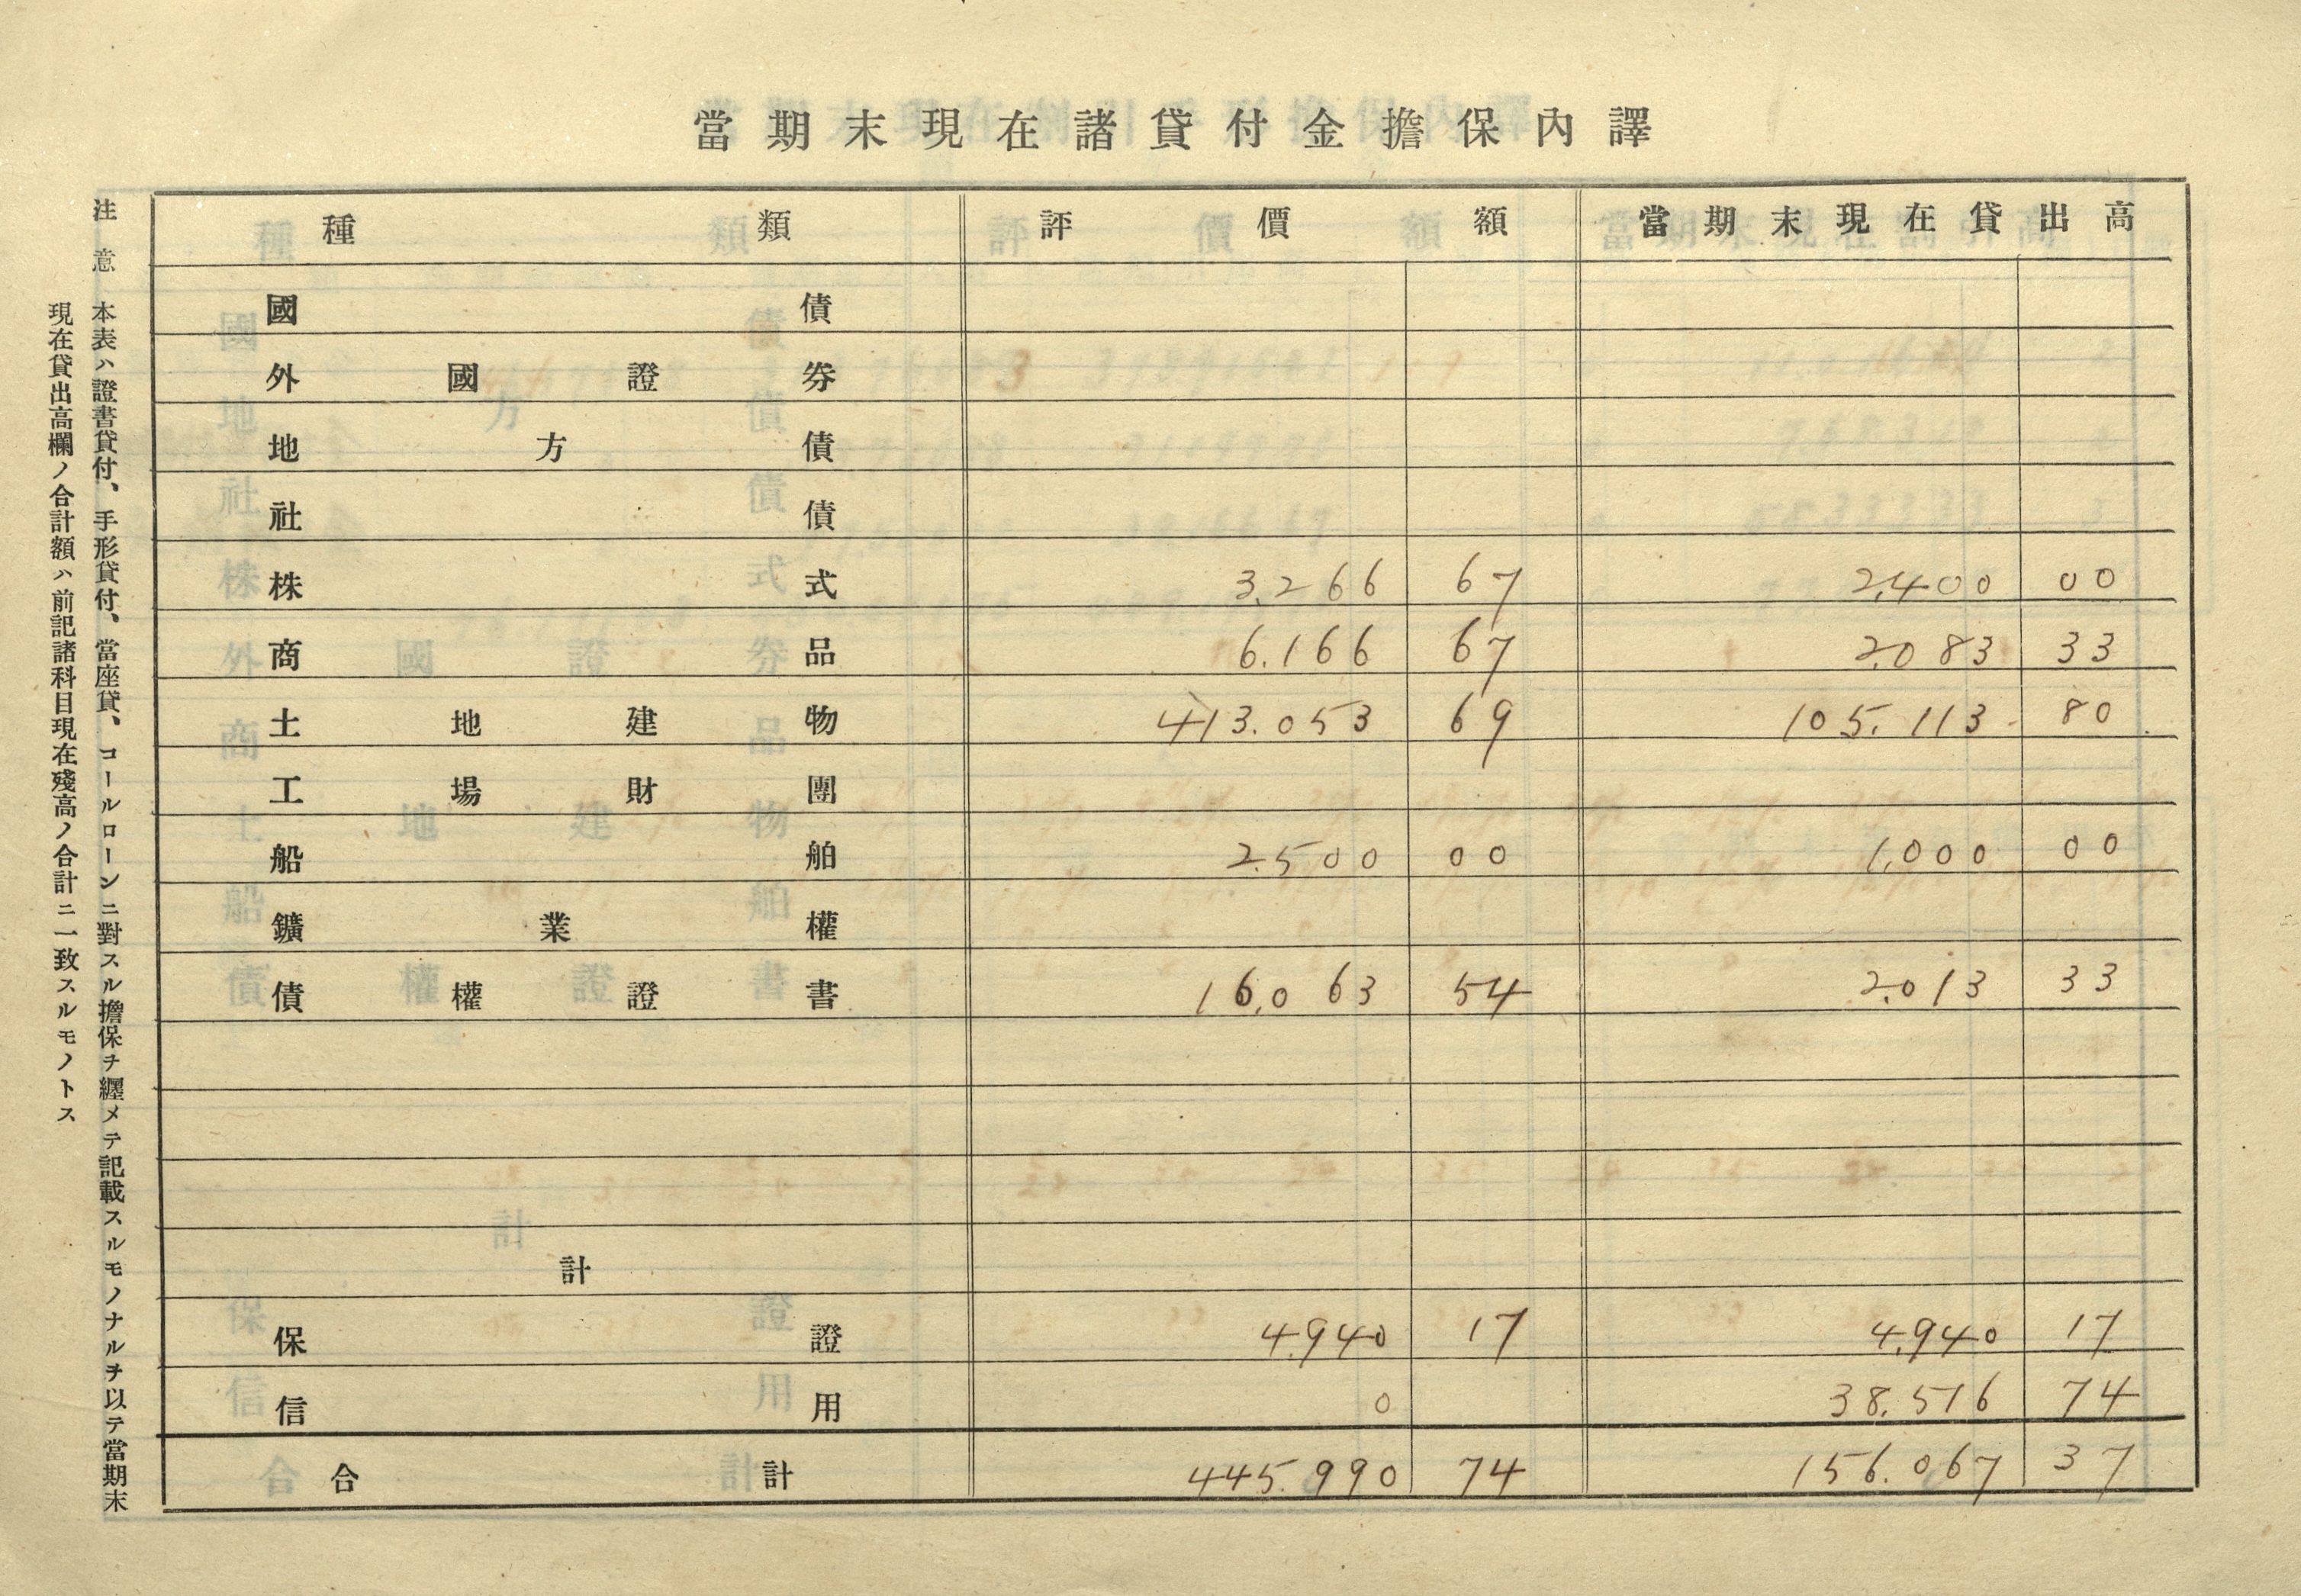 當期末現在諸貸付金擔保內譯
種類 評價額 當期末現在貸出高
國債
外國證券
地方債
社債
株式 3,266 67 2,400 00
商品 6.166 67 2,083 33
土地建物 413.053 69 105.113 80
工場財團
船舶 2.500 00 1,000 00
鑛業權
債權證書 16,063 54 2,013 33
計
保證 4.940 17 4,940 17
信用 0 38.516 74
合計 445.990 74 156.067 37
注意 本表ハ證書貸付、手形貸付、當座貸、コールローンニ對スル擔保チ纒メテ記載スルモノナルチ以テ當期末
現在貸出高欄ノ合計額ハ前記諸科目現在殘高ノ合計ニ一致スルモノトス